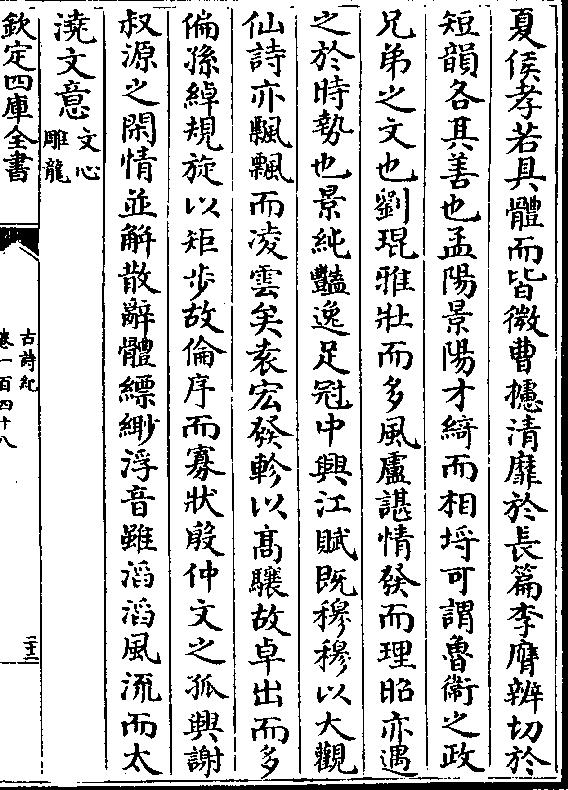 夏侯孝若具體而皆微曹攄清靡於長篇李膺辨切於
短韻各其善也孟陽景陽才綺而相埒可謂魯衛之政
兄弟之文也劉琨雅壯而多風盧諶情發而理昭亦遇
之於時勢也景純豔逸足冠中興江賦既穆穆以大觀
仙詩亦飄飄而凌雲矣袁宏發軫以高驤故卓出而多
偏孫綽規旋以矩步故倫序而寡狀殷仲文之孤興謝
叔源之閑情並解散辭體縹緲浮音雖滔滔風流而太
澆文意文心雕龍
欽定四庫全書
古詩紀
卷一百四十八
二十三